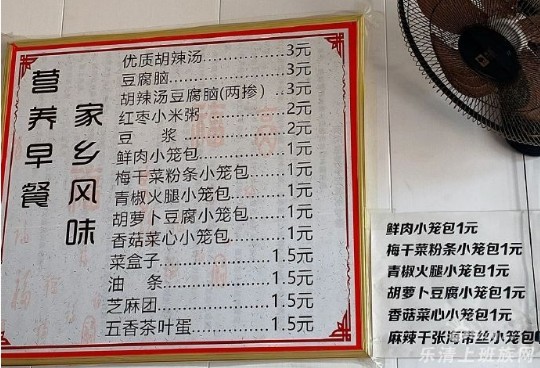 营养早餐
家乡风味
优质胡辣汤……………3元
豆腐脑……………3元
胡辣汤豆腐脑(两掺)…3元
红枣小米粥……………2元
豆 浆……………2元
鲜肉小笼包……………1元
梅干菜粉条小笼包………1元
青椒火腿小笼包………1元
胡萝卜豆腐小笼包………1元
香菇菜心小笼包………1元
菜盒子……………1.5元
油 条……………1.5元
芝麻团……………1.5元
五香茶叶蛋……………1.5元
鲜肉小笼包1元
梅干菜粉条小笼包1元
青椒火腿小笼包1元
胡萝卜豆腐小笼包1元
香菇菜心小笼包1元
麻辣千张海带丝小笼包
乐清上班族网